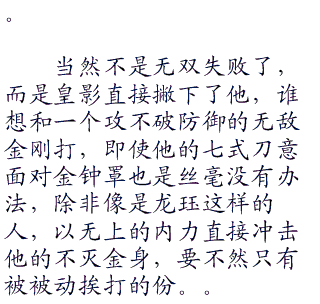 。
当然不是无双失败了，
而是皇影直接撇下了他，谁
想和一个攻不破防御的无敌
金刚打，即使他的七式刀意
面对金钟罩也是丝毫没有办
法，除非像是龙珏这样的
人，以无上的内力直接冲击
他的不灭金身，要不然只有
被被动挨打的份。。